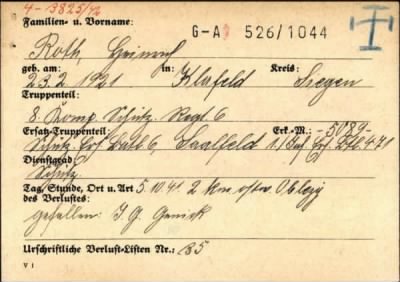 4-13825/42
Familien- u. Vorname: G-A 526/1044
Roth, Heinrich
geb. am: in: Kreis:
23.2.1921 Klafeld Siegen
Truppenteil:
8. Komp. Schütz. Regt. 6
Ersatz-Truppenteil: Erk.-M.: -5089-
Schtz. Ers. Batl. 6, Saalfeld 1./Inf. Ers. Btl. 471
Dienstgrad
Schütze
Tag, Stunde, Ort u. Art 5.10.41. 2 km
des Verlustes:
gefallen: I. G. Genick
Urschriftliche Verlust-Listen Nr.: 85
V I